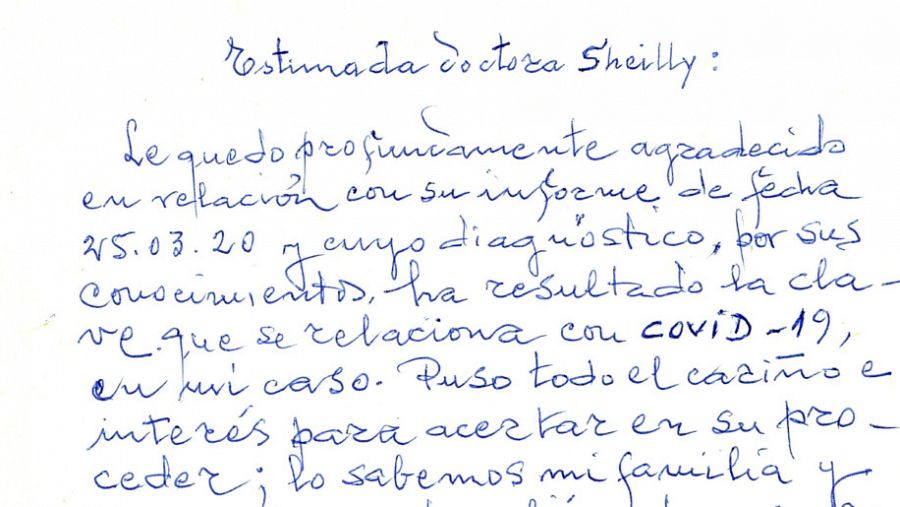 Estimada doctora Sheilly:
Le quedo profundamente agradecido
en relación con su informe de fecha
25.03.20 y cuyo diagnóstico, por sus
conocimientos, ha resultado la cla-
ve que se relaciona con COVID-19,
en mi caso. Puso todo el cariño e
interés para acertar en su pro-
ceder; lo sabemos mi familia y